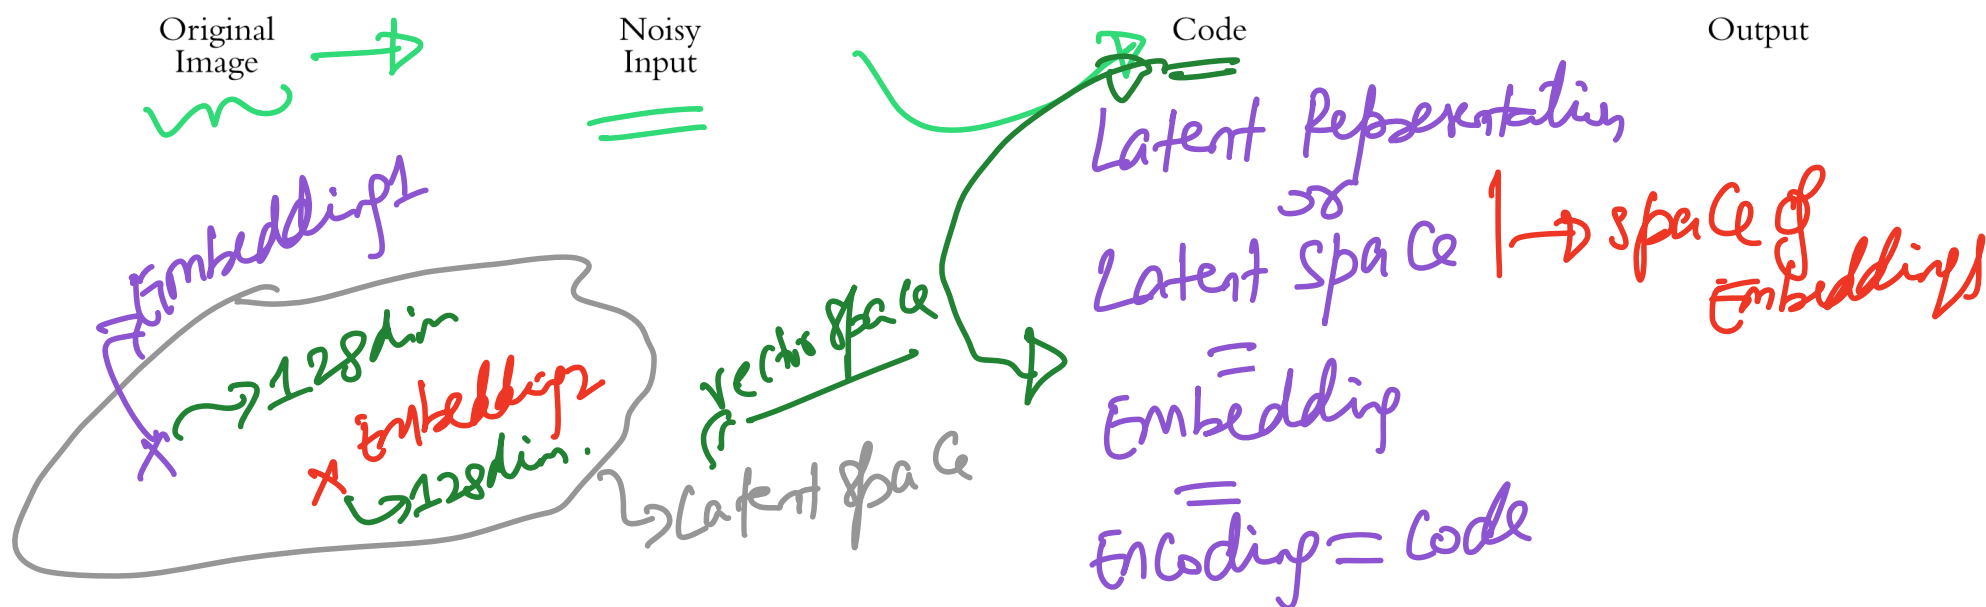 Original
Image
Noisy
Input
Code
Output
Latent Representation
or
Latent space
→ space of
Embeddings
=
Embedding
=
Encoding = Code
Embedding1
→ 128dim
Embedding2
→ 128dim.
vector space
Latent space